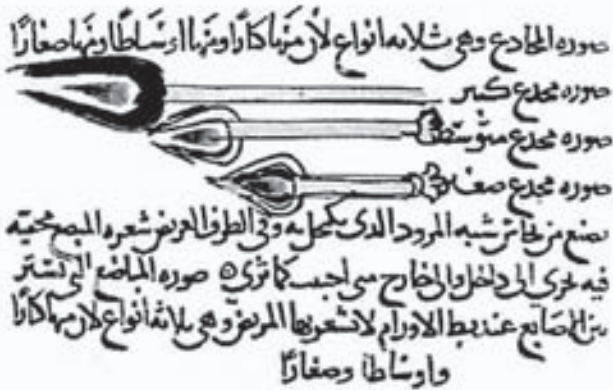 صوره المخادع وهى ثلاثه انواع لان منها كبارا ومنها اوساطا ومنها صغارا
صوره مخدع كبير
صوره مخدع متوسط
صوره مخدع صغير
تصنع من نحاس شبه المرود الذى يكحل به وفى الطرف العريض شعره المبضع مخفيه
فيه تجرى الى داخل والى خارج متى احببت كما ترى ٥ صوره المباضع التى تستتر
بين الاصابع عند بط الاورام لا يشعر بها المريض وهى ثلاثه انواع لان منها كبارا
واوساطا وصغارا